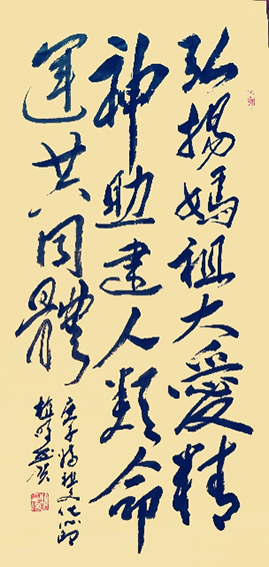 弘揚媽祖大愛精
神助建人類命
運共同體
庚子媽祖文化